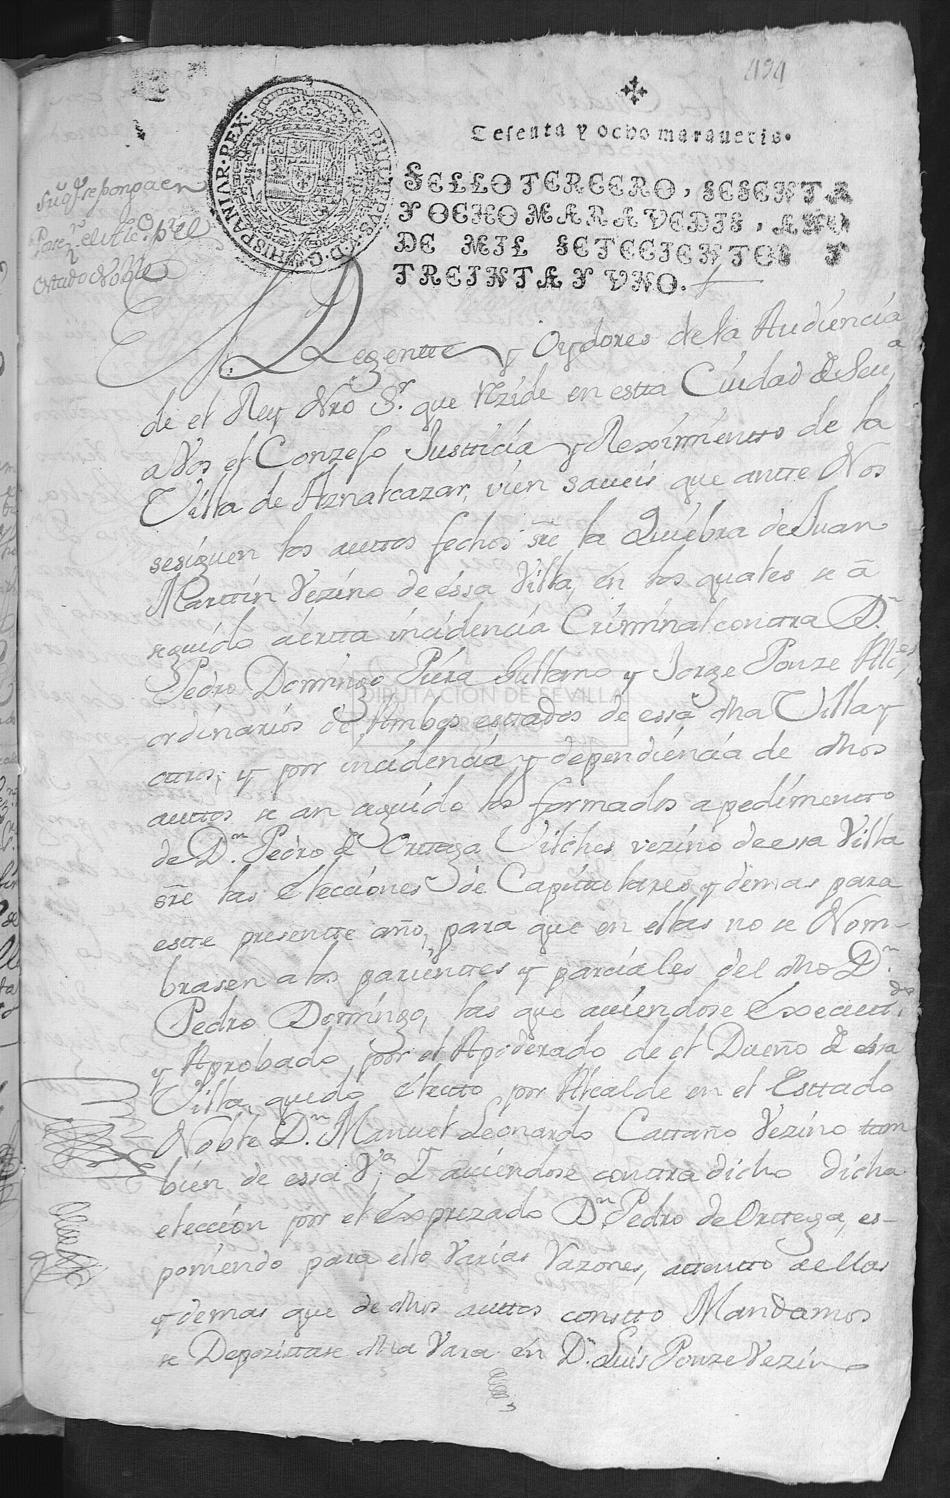 494
Sesenta y ocho maravedis.
SELLO TERCERO, SESENTA
Y OCHO MARAVEDIS, AÑO
DE MIL SETECIENTOS Y
TREINTA Y UNO.
HISPANIARUM REX
PHILIPPVS V D G
en
Estado Noble
Regentte y Oydores de la Audiencia
de el Rey Nro Sr. que rezide en estta Ciudad de Seua
a Vos el Conzejo Justticia y Reximientto de la
Villa de Aznalcazar, vien saveis que antte Nos
se siguen los auttos fechos sre la Quiebra de Juan
Marttin Vezino de essa Villa, en los quales se a
seguido cierta incidencia Criminal contra Dn.
Pedro Domingo Piera Gullamo y Jorge Ponze Alces
ordinarios de Ambos estados de essa dha Villa y
ottros, y por incidencia y dependiencia de dhos
auttos se an seguido los formados a pedimentto
de Dn. Pedro de Orttega Vilches vezino de esa Villa
sre las elecciones de Capitulares y demas para
estte presentte año, para que en ellas no se Nom-
brasen a los parienttes y parciales del dho Dn.
Pedro Domingo, las que auiendose Executtdo
y Aprobado por el Apoderado de el Dueño de essa
Villa, quedo electto por Alcalde en el Esttado
Noble Dn. Manuel Leonardo Cattaño Vezino tam
bien de essa Va, I auiendose contradicho dicha
eleccion por el Exprezado Dn. Pedro de Orttega, es-
poniendo para ello Varias Razones, attentto a ellas
y demas que de dhos auttos constto Mandamos
se Depozittase dha Vara en Dn. Luis Ponze Vezino
DIPUTACIÓN DE SEVILLA